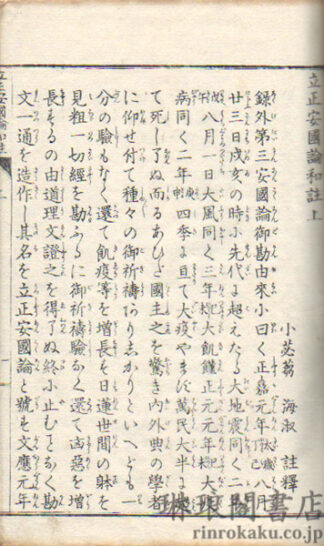 立正安國論和註上
小苾蒭 海淑 註釋
錄外第三安國論御勘由來小曰く正嘉元年丁巳太歲八月
廿三日戌亥の時小先代よ超えたる大地震同く二年
戊午八月一日大風同く三年己未大飢饉正元元年己未大疫
病同く二年庚申四季よ亘て大疫やまに萬民大半よ超
て死し了ぬ而るあひだ國主之を驚き内外典の學者
に仰せ付て種々の御祈禱ありしかりといへども一
分の驗もなく還て飢疫等を增長を日蓮世間の躰を
見粗一切經を勘ふるに御祈禱驗なく還て凶惡を增
長するの由道理文證之を得了ぬ終小止むことなく勘
文一通を造作し其名を立正安國論と號も文應元年
立正安國論和註
上
一
琳琅閣書店
rinrokaku.co.jp